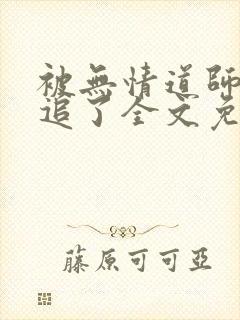 被無情道師
追了全文免
藤原可可亞